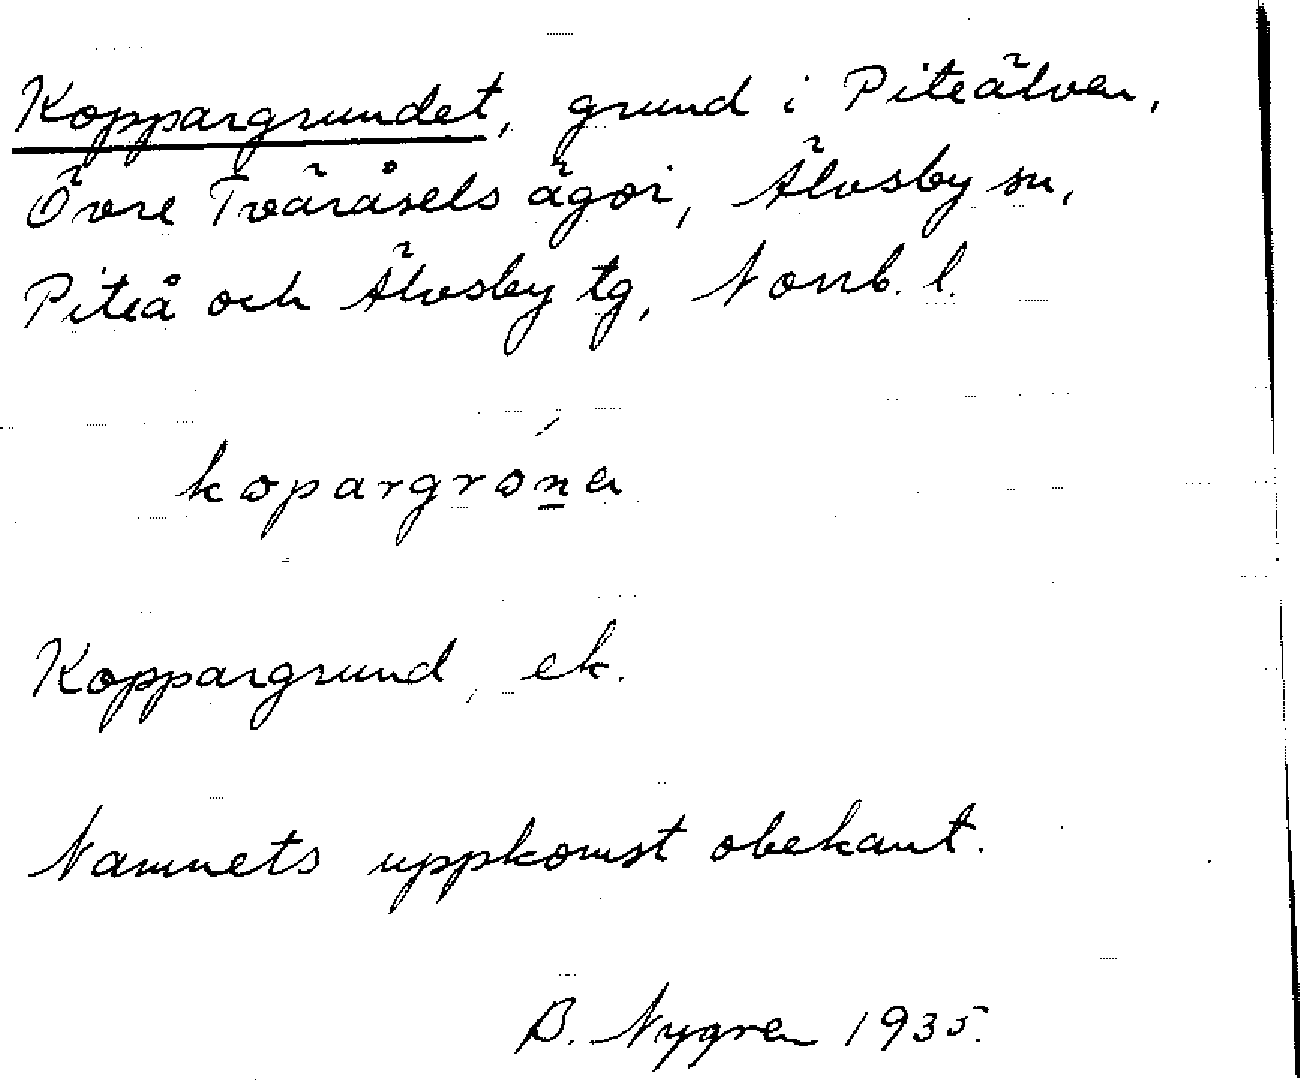 Koppargrundet, grund i Piteälven,
Övre Tväråsels ägor, Älvsby sn,
Piteå och Älvsby tg, Norrb. l.
kopargróna
Koppargrund, ek.
Namnets uppkomst obekant.
B. Nygren 1935.